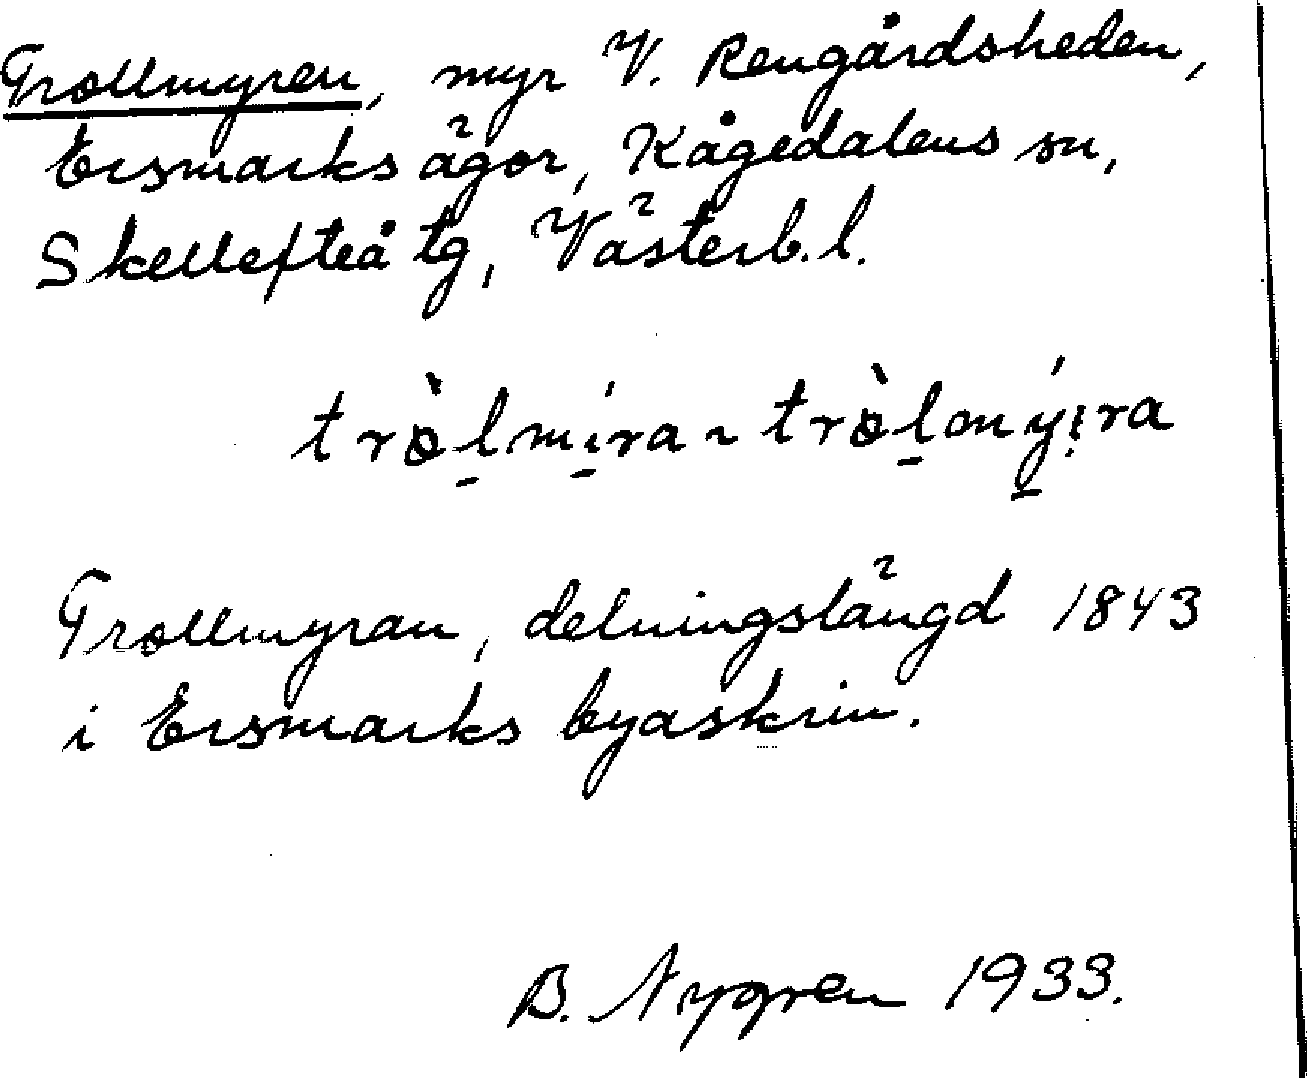 Trollmyren, myr V. Rengårdsheden,
Ersmarks ägor, Kågedalens sn,
Skellefteå tg, Västerb. l.
trò̤l̠mí̠ra ~ trò̤l̠mý̠i̤ra
Trollmyran, delningslängd 1843
i Ersmarks byaskrin.
B. Nygren 1933.